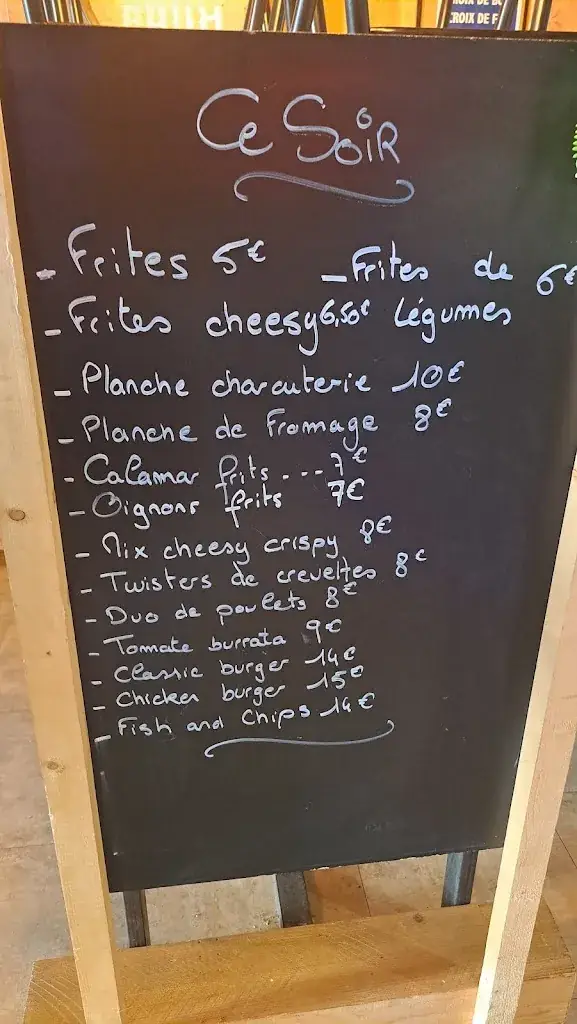 CROIX DE F
Ce Soir
- Frites 5€
- Frites de Légumes 6€
- Frites cheesy 6,50€
- Planche charcuterie 10€
- Planche de Fromage 8€
- Calamar frits ... 7€
- Oignons frits 7€
- Mix cheesy crispy 8€
- Twisters de crevettes 8€
- Duo de poulets 8€
- Tomate burrata 9€
- Classic burger 14€
- Chicken burger 15€
- Fish and Chips 14€